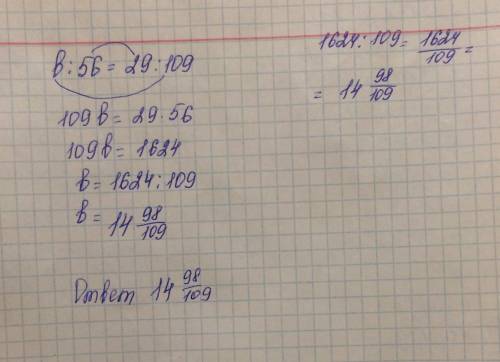 в : 56 = 29 : 109
109в = 29 · 56
109в = 1624
в = 1624 : 109
в = 14 98/109
Ответ 14 98/109
1624 : 109 = 1624/109 =
= 14 98/109